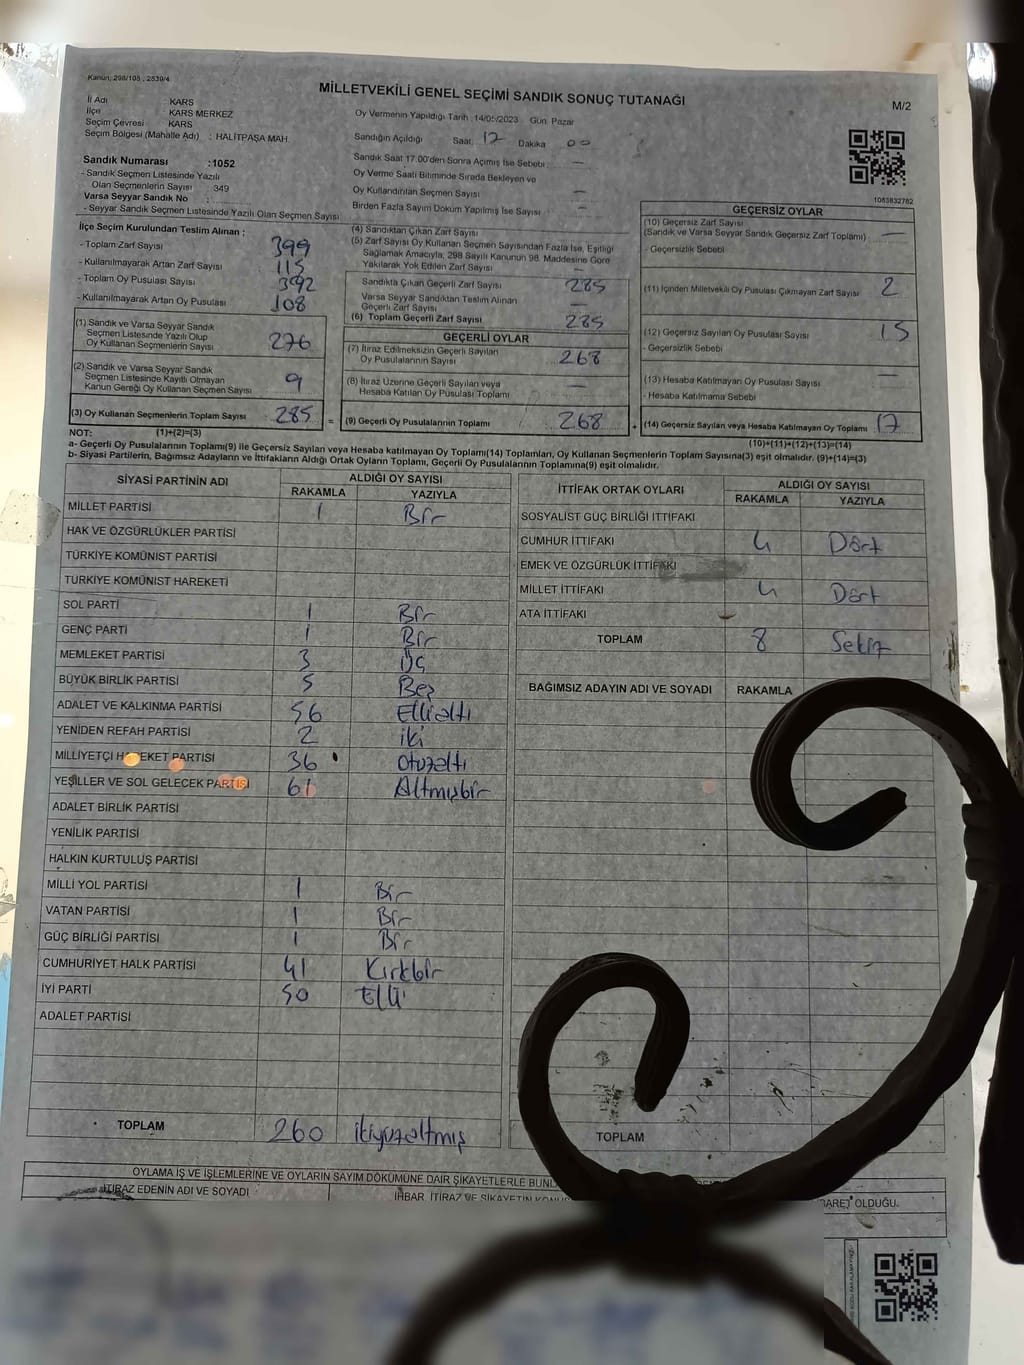 Kanun; 298/105 , 2839/4
MİLLETVEKİLİ GENEL SEÇİMİ SANDIK SONUÇ TUTANAĞI
M/2
İl Adı : KARS
İlçe : KARS MERKEZ
Seçim Çevresi : KARS
Seçim Bölgesi (Mahalle Adı) : HALİTPAŞA MAH.
Oy Vermenin Yapıldığı Tarih : 14/05/2023 Gün Pazar
Sandığın Açıldığı Saat 17 Dakika 00
Sandık Saat 17.00'den Sonra Açılmış İse Sebebi : —
Oy Verme Saati Bitiminde Sırada Bekleyen ve
Oy Kullandırılan Seçmen Sayısı —
Birden Fazla Sayım Döküm Yapılmış İse Sayısı —
1083832782
Sandık Numarası : 1052
- Sandık Seçmen Listesinde Yazılı
Olan Seçmenlerin Sayısı : 349
Varsa Seyyar Sandık No :
- Seyyar Sandık Seçmen Listesinde Yazılı Olan Seçmen Sayısı
İlçe Seçim Kurulundan Teslim Alınan :
- Toplam Zarf Sayısı 399
- Kullanılmayarak Artan Zarf Sayısı 115
- Toplam Oy Pusulası Sayısı 392
- Kullanılmayarak Artan Oy Pusulası 108
(1) Sandık ve Varsa Seyyar Sandık
Seçmen Listesinde Yazılı Olup
Oy Kullanan Seçmenlerin Sayısı 276
(2) Sandık ve Varsa Seyyar Sandık
Seçmen Listesinde Kayıtlı Olmayan
Kanun Gereği Oy Kullanan Seçmen Sayısı 9
(3) Oy Kullanan Seçmenlerin Toplam Sayısı 285 =
(4) Sandıktan Çıkan Zarf Sayısı
(5) Zarf Sayısı Oy Kullanan Seçmen Sayısından Fazla İse, Eşitliği
Sağlamak Amacıyla, 298 Sayılı Kanunun 98. Maddesine Göre
Yakılarak Yok Edilen Zarf Sayısı —
Sandıkta Çıkan Geçerli Zarf Sayısı 285
Varsa Seyyar Sandıktan Teslim Alınan
Geçerli Zarf Sayısı —
(6) Toplam Geçerli Zarf Sayısı 285
GEÇERLİ OYLAR
(7) İtiraz Edilmeksizin Geçerli Sayılan
Oy Pusulalarının Sayısı 268
(8) İtiraz Üzerine Geçerli Sayılan veya
Hesaba Katılan Oy Pusulaları Toplamı —
(9) Geçerli Oy Pusulalarının Toplamı 268 +
GEÇERSİZ OYLAR
(10) Geçersiz Zarf Sayısı
(Sandık ve Varsa Seyyar Sandık Geçersiz Zarf Toplamı) : —
- Geçersizlik Sebebi
(11) İçinden Milletvekili Oy Pusulası Çıkmayan Zarf Sayısı 2
(12) Geçersiz Sayılan Oy Pusulası Sayısı 15
- Geçersizlik Sebebi
(13) Hesaba Katılmayan Oy Pusulası Sayısı —
- Hesaba Katılmama Sebebi
(14) Geçersiz Sayılan veya Hesaba Katılmayan Oy Toplamı 17
NOT: (1)+(2)=(3)
(10)+(11)+(12)+(13)=(14)
a- Geçerli Oy Pusulalarının Toplamı(9) ile Geçersiz Sayılan veya Hesaba katılmayan Oy Toplamı(14) Toplamları, Oy Kullanan Seçmenlerin Toplam Sayısına(3) eşit olmalıdır. (9)+(14)=(3)
b- Siyasi Partilerin, Bağımsız Adayların ve İttifakların Aldığı Ortak Oyların Toplamı, Geçerli Oy Pusulalarının Toplamına(9) eşit olmalıdır.
SİYASİ PARTİNİN ADI ALDIĞI OY SAYISI
RAKAMLA YAZIYLA
MİLLET PARTİSİ 1 Bir
HAK VE ÖZGÜRLÜKLER PARTİSİ
TÜRKİYE KOMÜNİST PARTİSİ
TÜRKİYE KOMÜNİST HAREKETİ
SOL PARTİ 1 Bir
GENÇ PARTİ 1 Bir
MEMLEKET PARTİSİ 3 Üç
BÜYÜK BİRLİK PARTİSİ 5 Beş
ADALET VE KALKINMA PARTİSİ 56 Ellialtı
YENİDEN REFAH PARTİSİ 2 iki
MİLLİYETÇİ HAREKET PARTİSİ 36 otuzaltı
YEŞİLLER VE SOL GELECEK PARTİSİ 61 Altmışbir
ADALET BİRLİK PARTİSİ
YENİLİK PARTİSİ
HALKIN KURTULUŞ PARTİSİ
MİLLİ YOL PARTİSİ 1 Bir
VATAN PARTİSİ 1 Bir
GÜÇ BİRLİĞİ PARTİSİ 1 Bir
CUMHURİYET HALK PARTİSİ 41 Kırkbir
İYİ PARTİ 50 Elli
ADALET PARTİSİ
TOPLAM 260 ikiyüzaltmış
İTTİFAK ORTAK OYLARI ALDIĞI OY SAYISI
RAKAMLA YAZIYLA
SOSYALİST GÜÇ BİRLİĞİ İTTİFAKI
CUMHUR İTTİFAKI 4 Dört
EMEK VE ÖZGÜRLÜK İTTİFAKI
MİLLET İTTİFAKI 4 Dört
ATA İTTİFAKI
TOPLAM 8 Sekiz
BAĞIMSIZ ADAYIN ADI VE SOYADI RAKAMLA
TOPLAM
OYLAMA İŞ VE İŞLEMLERİNE VE OYLARIN SAYIM DÖKÜMÜNE DAİR ŞİKAYETLERLE
İTİRAZ EDENİN ADI VE SOYADI
İHBAR, İTİRAZ VE ŞİKAYETİN
OLDUĞU.